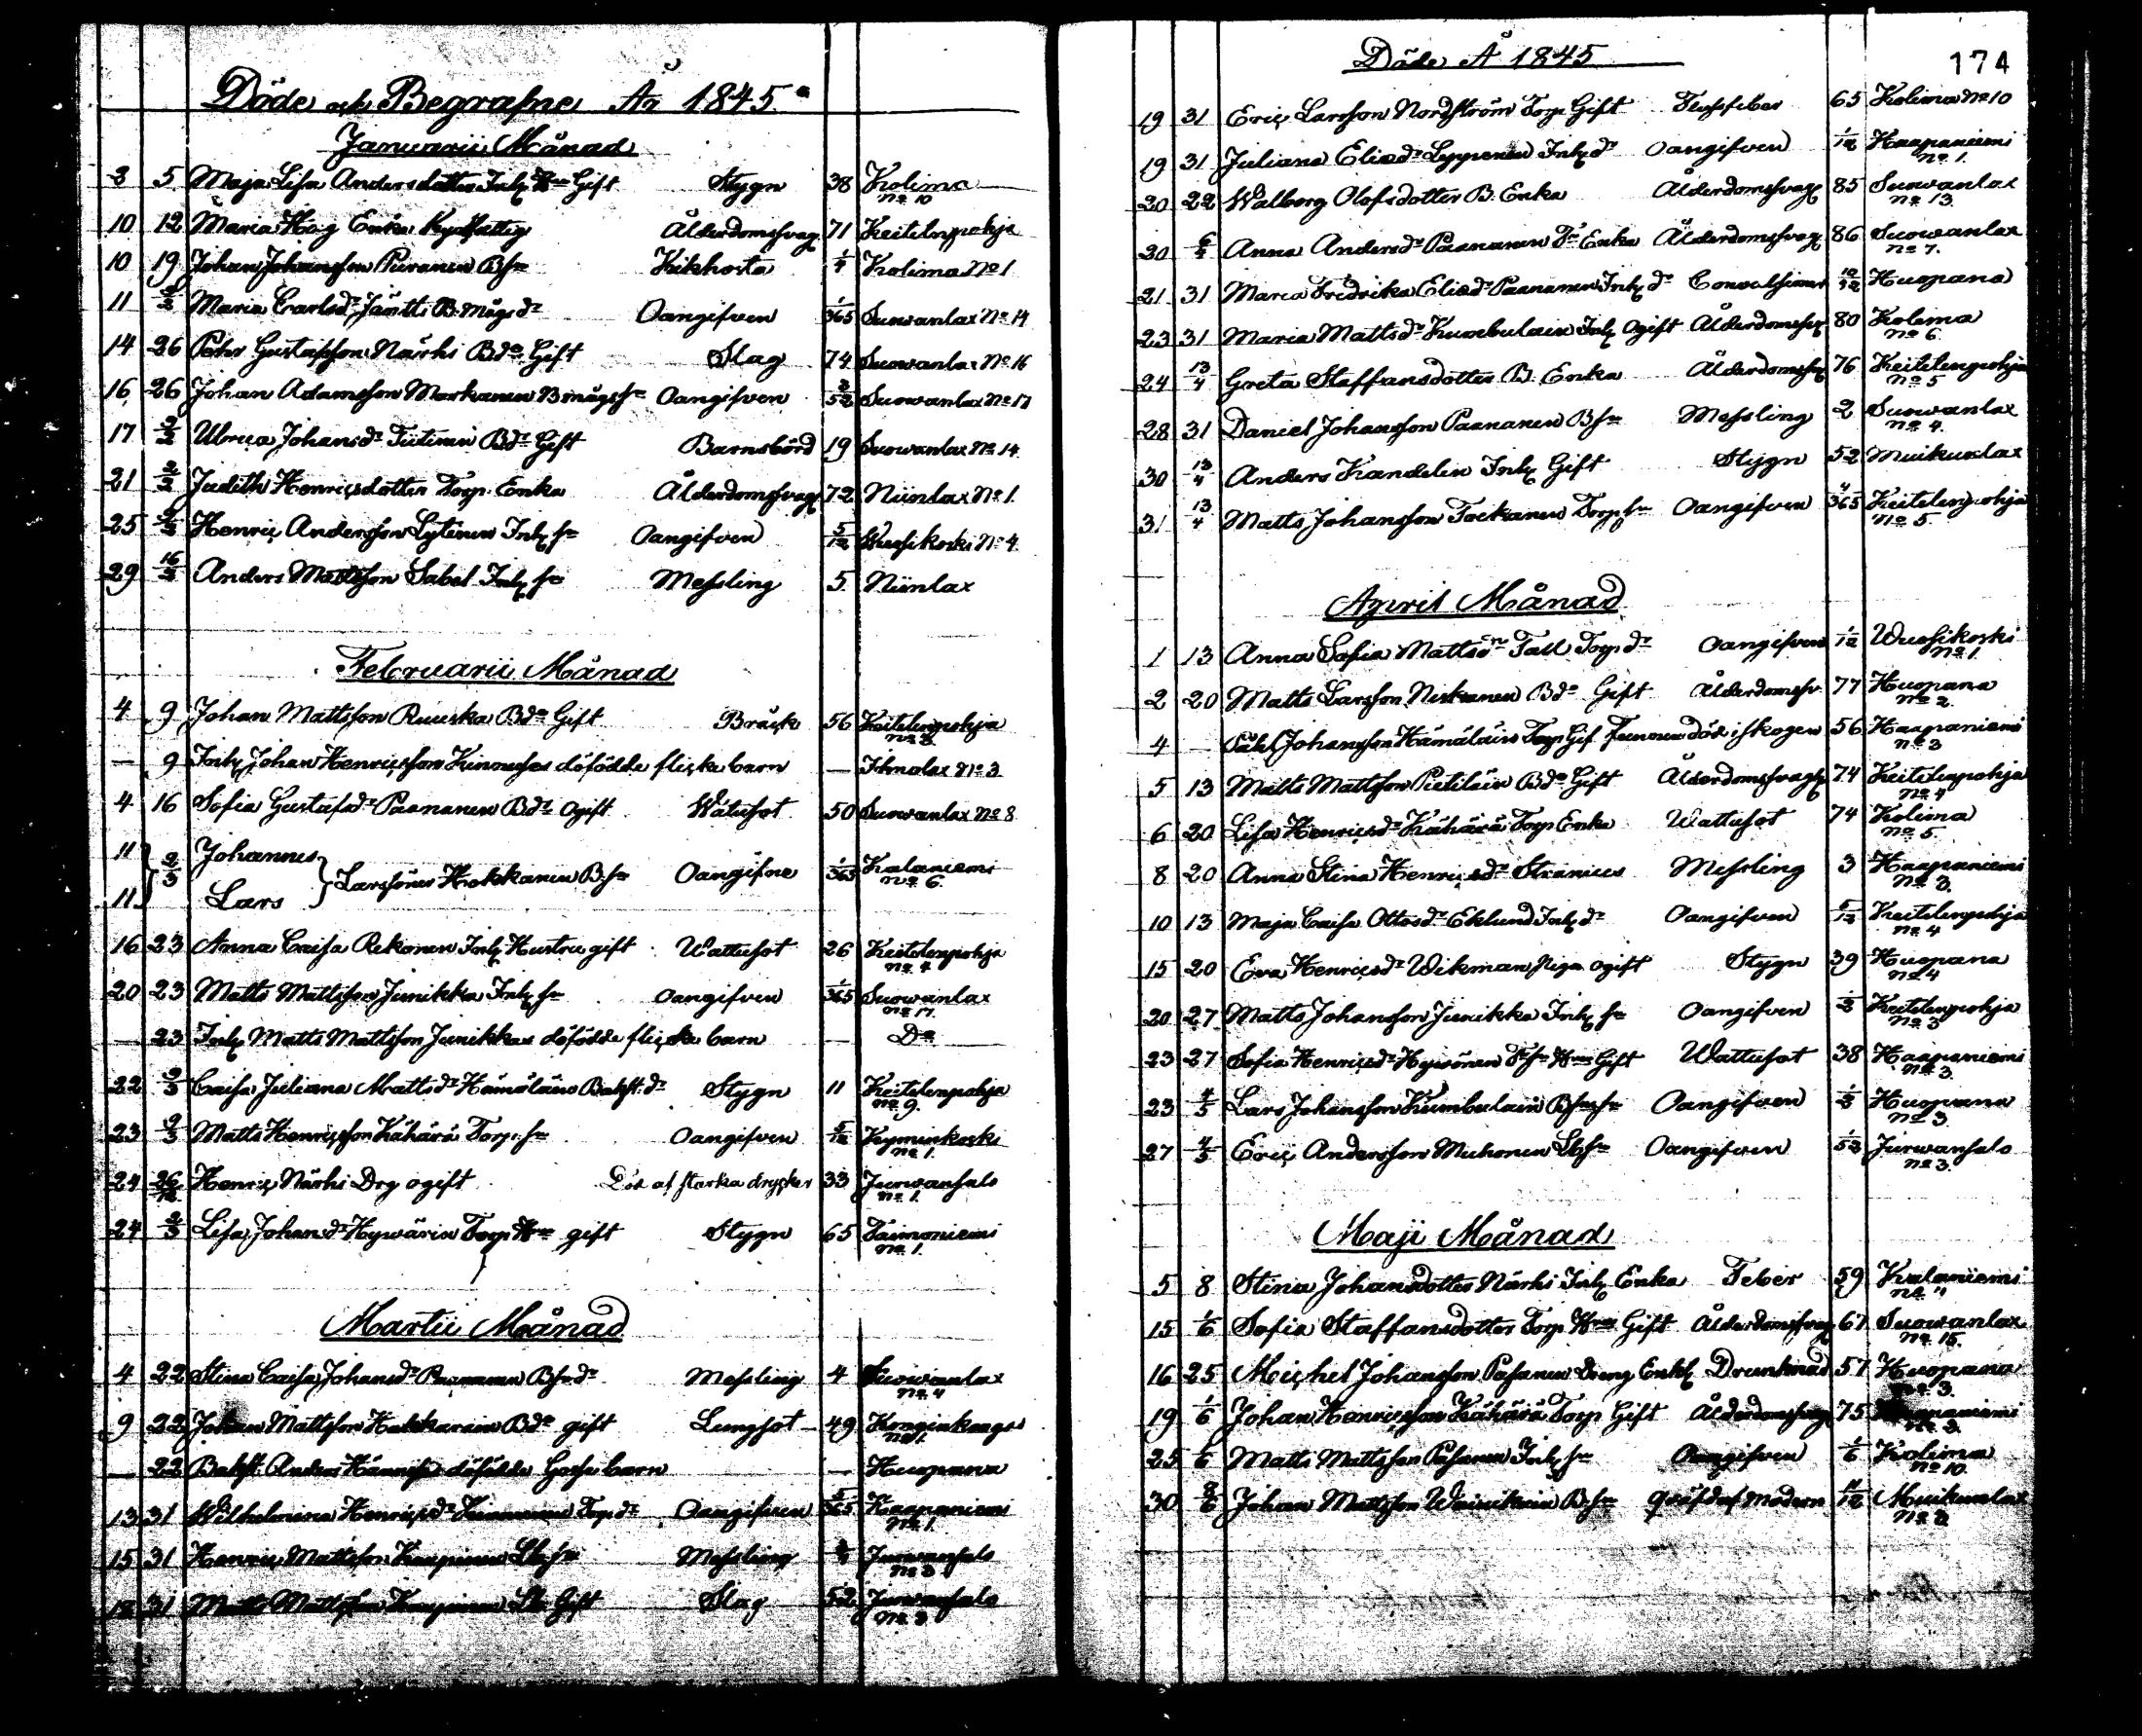 Döde och Begrafne År 1845.
Januarii Månad
3 5 Maja Lisa Andersdotter Inh. Hu Gift Stygn 38 Kolima No 10
10 12 Maria Hög Enka Ålderdomssvag 71 Keitelepohja
10 19 Johan Johansson Puranen Bsn Kikhosta 1/4 Kolima No 1
11 2/2 Maria Carlsdr Jäntti B. mågs dr Oangifven 1/365 Suowanlax No 14
14 26 Pehr Gustafsson Närhi Bde Gift Slag 74 Suowanlax No 16
16 26 Johan Adamsson Markanen B mågs sn Oangifven 3/52 Suowanlax No 17
17 2/2 Ulrica Johansdr Tiitinen Bdr Gift Barnsbörd 19 Suowanlax No 14
21 2/2 Judith Henricsdotter Torp. Enka Ålderdomssvag 72 Niinlax No 1.
25 2/2 Henric Andersson Lytinen Inh sn Oangifven 5/12 Wuosikoski No 4
29 16/2 Anders Mattsson Sabel Inh sn Messling 5 Niinlax
Februarii Månad
4 9 Johan Mattsson Ruuska Bde Gift Bråck 56 Keitelepohja No 3
— 9 Inh Johan Henricsson Kinnuses döfödde flicke barn — Ihmolax No 3
4 16 Sofia Gustafsdr Paananen Bdr Ogift Wåtusot 50 Suowanlax No 8
11 Johannes
2/3 Larssöner Hakkanen Bsn Oangifne 1/365 Kalaniemi No 6.
11 Lars
16 23 Anna Caisa Rekonen Inh Hustru gift Wattusot 26 Keitelepohja No 4
20 23 Matts Mattsson Junikka Inh sn Oangifven 1/365 Suowanlax No 17
— 23 Inh Matts Mattsson Junikkas döfödde flicke barn — Do
22 2/3 Caisa Juliana Mattsdr Hämäläin Bakst. dr Stygn 11 Keitelepohja No 9.
23 2/3 Matts Henricsson Kähärä Torp. sn Oangifven 5/12 Kyminkoski No 1.
24 Henric Närhi Drg ogift Död af starka drycker 33 Jurwansalo No 1.
24 2/3 Lisa Johansdr Hywärin Torp Hu gift Stygn 65 Vaimoniemi No 1.
Martii Månad
4 22 Stina Caisa Johansdr Paananen Bsndr Messling 4 Suowanlax No 4
9 22 Johan Mattsson Hakkarain Bde gift Lungsot 49 Konginkangas No 1.
— 22 Bakst. Anders döfödde Gosse barn — Huopana
13 31 Wilhelmina Henricsdr Kinnunen Torp dr Oangifven 5/365 Haapaniemi No 1.
15 31 Henric Mattsson Kaupinen sn Messling Jurwansalo No 3
31 Matts Mattsson Kaupinen Gift Slag 52 Jurwansalo No 3
Döde År 1845
174
19 31 Eric Larsson Nordström Torp Gift 65 Kolima No 10
19 31 Juliana Eliasdr Lyppenen Inh dr Oangifven 1/12 Haapaniemi No 1.
20 22 Walborg Olofsdotter B. Enka Ålderdomssvag 85 Suowanlax No 13.
20 6/4 Anna Andersdr Paananen Enka Ålderdomssvag 86 Suowanlax No 7.
21 31 Maria Fredrika Eliasdr Paananen Inh dr Convulsioner 10/12 Huopana
23 31 Maria Mattsdr Kumbulain Inh Ogift Ålderdomssv 80 Kolima No 6
24 13/4 Greta Staffansdotter B. Enka Ålderdomssv 76 Keitelepohja No 5
28 31 Daniel Johansson Paananen Bsn Messling 2 Suowanlax No 4.
30 13/4 Anders Kandelin Inh Gift Stygn 52 Muikunlax
31 13/4 Matts Johansson Tockanen Torp sn Oangifven 4/365 Keitelepohja No 5
April Månad
1 13 Anna Sofia Mattsdr Tall Torp dr Oangifven 1/12 Wuosikoski No 1.
2 20 Matts Larsson Niskanen Bde Gift Ålderdomssv. 77 Huopana No 2
4 — Påhl Johansson Hämäläin Torp Gift Funnen död i skogen 56 Haapaniemi No 3
5 13 Matts Mattsson Pietiläin Bde Gift Ålderdomssvagh 74 Keitelepohja No 4
6 20 Lisa Henricsdr Kähärä Torp Enka Wattusot 74 Kolima No 5
8 20 Anna Stina Henricsdr Stranius Messling 3 Haapaniemi No 3.
10 13 Maja Caisa Ottosdr Eklund Inh dr Oangifven 6/12 Keitelepohja No 4
15 20 Eva Henricsdr Wikman Piga ogift Stygn 39 Huopana No 4
20 27 Matts Johansson Junikka Inh sn Oangifven 1/2 Keitelepohja No 3
23 27 Sofia Henricsdr Hyvönen Hu Gift Wattusot 38 Haapaniemi No 3.
23 4/5 Lars Johansson Kumbulain Bsn sn Oangifven 1/2 Huopana No 3
27 4/5 Eric Andersson Muhonen sn Oangifven 1/52 Jurwansalo No 3.
Maji Månad
5 8 Stina Johansdotter Närhi Inh Enka Feber 59 Kalaniemi
15 1/6 Sofia Staffansdotter Torp Hu Gift Ålderdomssvag 67 Suowanlax No 15.
16 25 Michel Johansson Pasanen Dreng Enkl Drunknad 57 Huopana No 3.
19 1/6 Johan Henricsson Kähärä Torp Gift Ålderdomssvag 75 Haapaniemi No 3
25 1/6 Matts Mattsson Pasanen Inh sn Oangifven 1/6 Kolima No 10
30 8/6 Johan Mattsson Wainikain Bsn qväfd af modern Muikunlax No 3